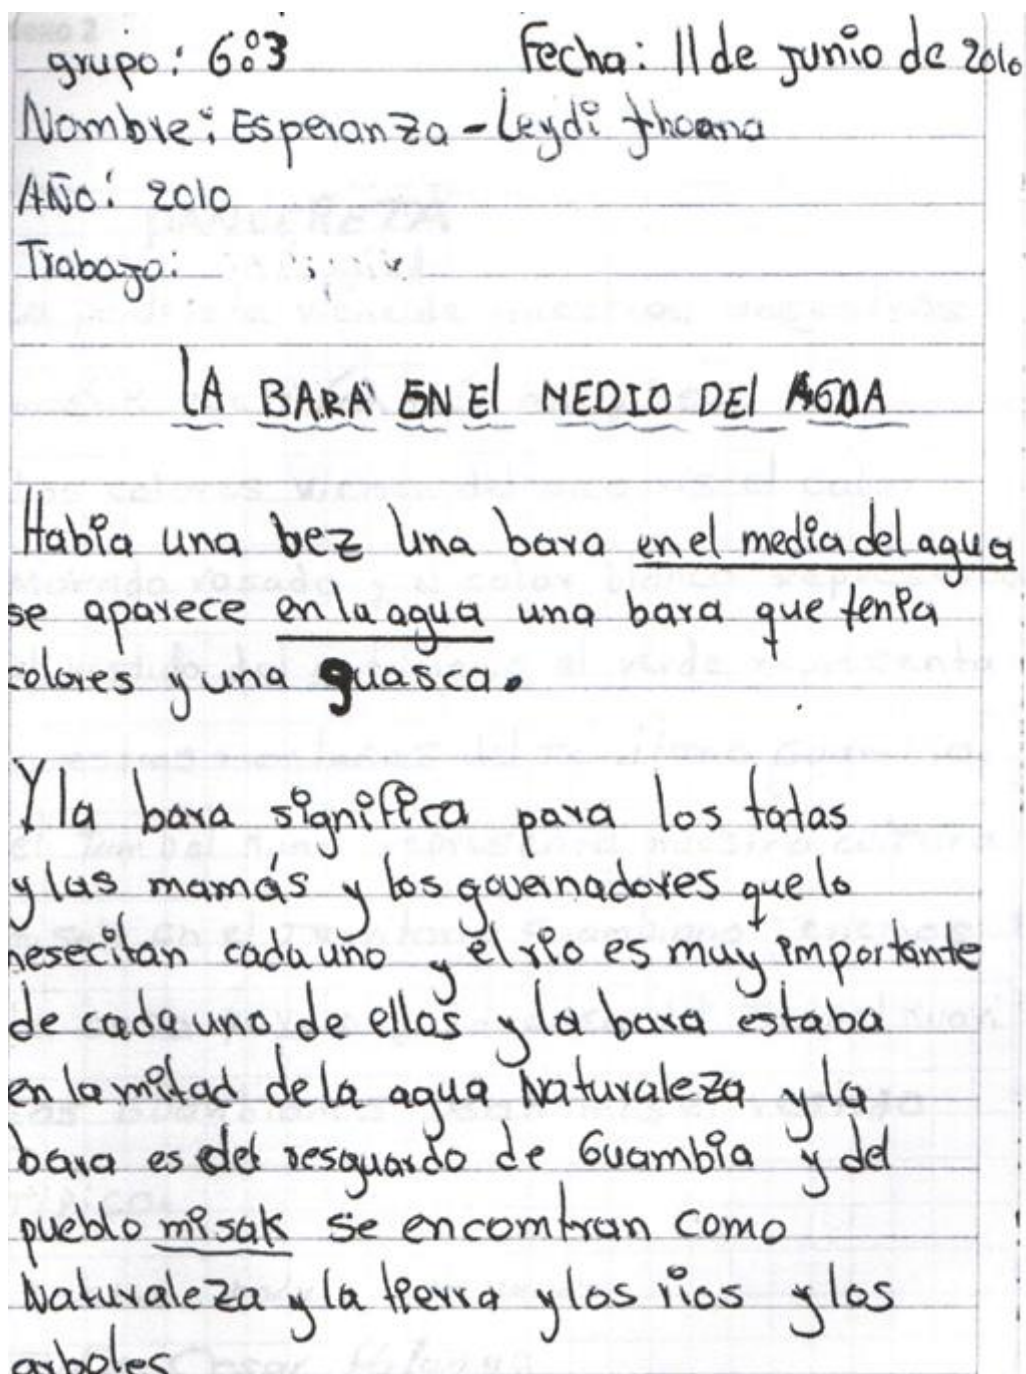 grupo: 6:3 Fecha: 11 de Junio de 2010
Nombre: Esperanza - Leydi Jhoana
AÑO: 2010
Trabajo:
LA BARA EN El MEDIO DEl AGUA
Había una bez una bara en el media del agua
se aparece en la agua una bara que tenía
colores y una guasca.
Y la bara significa para los tatas
y las mamás y los governadores que lo
nesecitan cada uno y el río es muy importante
de cada uno de ellos y la bara estaba
en la mitad de la agua Naturaleza y la
bara es del resguardo de Guambía y del
pueblo misak se encomtran como
Naturaleza y la tierra y los rios y los
arboles